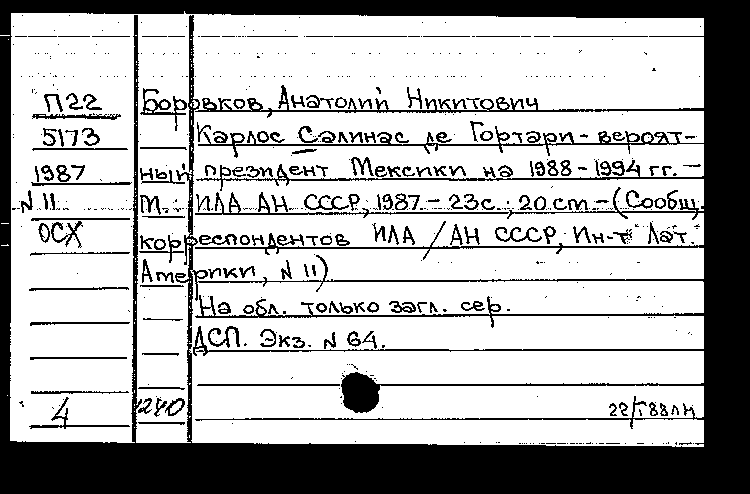 П22 Боровков, Анатолий Никитович
5173 Карлос Салинас де Гортари - вероят-
1987 ный президент Мексики на 1988 - 1994 гг. -
N 11 М.: ИЛА АН СССР, 1987 - 23 с.; 20 cm - (Сообщ.
ОСХ корреспондентов ИЛА / АН СССР, Ин-т Лат.
Америки, N 11)
На обл. только загл. сер.
ДСП. Экз. N 64.
4 1240 22/I 88 ЛН